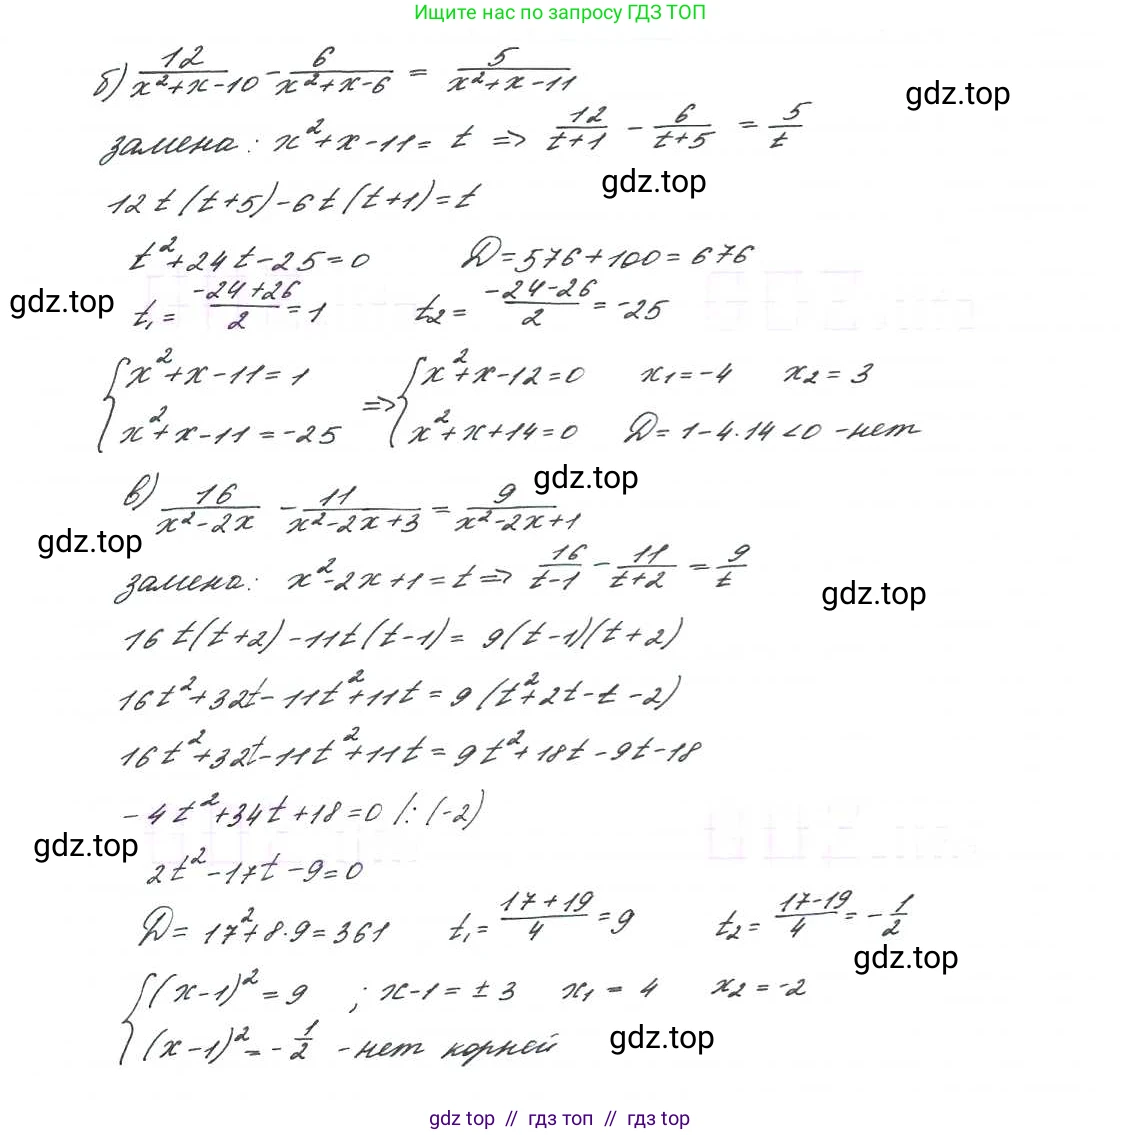 Ищите нас по запросу ГДЗ ТОП
б) 12/(x²+x-10) - 6/(x²+x-6) = 5/(x²+x-11)
gdz.top
замена: x²+x-11 = t => 12/(t+1) - 6/(t+5) = 5/t
gdz.top
12t(t+5)-6t(t+1)=t
t²+24t-25=0 D=576+100=676
gdz.top
t₁= (-24+26)/2 =1 t₂= (-24-26)/2 = -25
{x²+x-11=1 => {x²+x-12=0 x₁=-4 x₂=3
{x²+x-11=-25 {x²+x+14=0 D=1-4·14<0 -нет
gdz.top
в) 16/(x²-2x) - 11/(x²-2x+3) = 9/(x²-2x+1)
gdz.top
замена: x²-2x+1=t => 16/(t-1) - 11/(t+2) = 9/t
gdz.top
16t(t+2)-11t(t-1)= 9(t-1)(t+2)
16t²+32t-11t²+11t=9(t²+2t-t-2)
16t²+32t-11t²+11t=9t²+18t-9t-18
-4t²+34t+18=0 /:(-2)
gdz.top
2t²-17t-9=0
D=17²+8·9=361 t₁= (17+19)/4 =9 t₂= (17-19)/4 = -1/2
gdz.top
{(x-1)²=9 ; x-1=±3 x₁=4 x₂=-2
{(x-1)²=-1/2 -нет корней
gdz.top
gdz top // гдз топ // gdz top